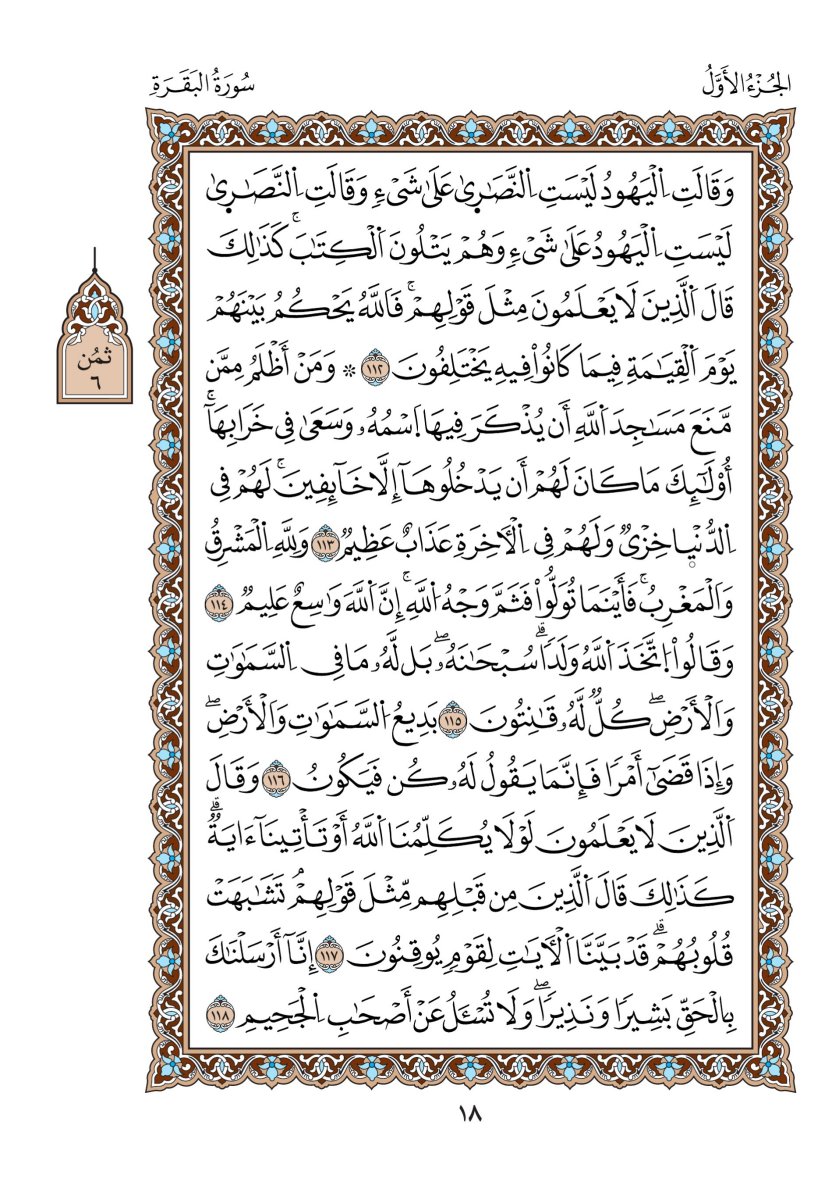 الجُزْءُ الأَوَّلُ
سُورَةُ البَقَرَةِ
وَقَالَتِ اِ۬لْيَهُودُ لَيْسَتِ اِ۬لنَّصَٰرِىٰ عَلَىٰ شَےْءٖ وَقَالَتِ اِ۬لنَّصَٰرِىٰ
لَيْسَتِ اِ۬لْيَهُودُ عَلَىٰ شَےْءٖ وَهُمْ يَتْلُونَ اَ۬لْكِتَٰبَۚ كَذَٰلِكَ
قَالَ اَ۬لذِينَ لَا يَعْلَمُونَ مِثْلَ قَوْلِهِمْۚ فَاللَّهُ يَحْكُمُ بَيْنَهُمْ
يَوْمَ اَ۬لْقِيَٰمَةِ فِيمَا كَانُواْ فِيهِ يَخْتَلِفُونَ ١١٢ ۞ وَمَنْ أَظْلَمُ مِمَّن
مَّنَعَ مَسَٰجِدَ اَ۬للَّهِ أَن يُذْكَرَ فِيهَا اَ۪سْمُهُۥ وَسَعَىٰ فِي خَرَابِهَاۚ
أُوْلَٰٓئِكَ مَا كَانَ لَهُمْ أَن يَدْخُلُوهَآ إِلَّا خَآئِفِينَۚ لَهُمْ فِي
اِ۬لدُّنْي۪ا خِزْيٞ وَلَهُمْ فِي اِ۬لْأٓخِرَةِ عَذَابٌ عَظِيمٞ ١١٣ وَلِلهِ اِ۬لْمَشْرِقُ
وَالْمَغْرِبُۚ فَأَيْنَمَا تُوَلُّواْ فَثَمَّ وَجْهُ اُ۬للَّهِۚ إِنَّ اَ۬للَّهَ وَٰسِعٌ عَلِيمٞ ١١٤
وَقَالُواْ اُ۪تَّخَذَ اَ۬للَّهُ وَلَدٗاۗ سُبْحَٰنَهُۥۖ بَل لَّهُۥ مَا فِي اِ۬لسَّمَٰوَٰتِ
وَالْأَرْضِۖ كُلّٞ لَّهُۥ قَٰنِتُونَ ١١٥ بَدِيعُ اُ۬لسَّمَٰوَٰتِ وَالْأَرْضِۖ
وَإِذَا قَضَىٰٓ أَمْرٗا فَإِنَّمَا يَقُولُ لَهُۥ كُن فَيَكُونُ ١١٦ وَقَالَ
اَ۬لذِينَ لَا يَعْلَمُونَ لَوْلَا يُكَلِّمُنَا اَ۬للَّهُ أَوْ تَأْتِينَآ ءَايَةٞۗ
كَذَٰلِكَ قَالَ اَ۬لذِينَ مِن قَبْلِهِم مِّثْلَ قَوْلِهِمْ تَشَٰبَهَتْ
قُلُوبُهُمْۗ قَدْ بَيَّنَّا اَ۬لْأٓيَٰتِ لِقَوْمٖ يُوقِنُونَ ١١٧ إِنَّآ أَرْسَلْنَٰكَ
بِالْحَقِّ بَشِيرٗا وَنَذِيرٗاۖ وَلَا تُسْـَٔلُ عَنْ أَصْحَٰبِ اِ۬لْجَحِيمِ ١١٨
ثُمُن
٦
١٨